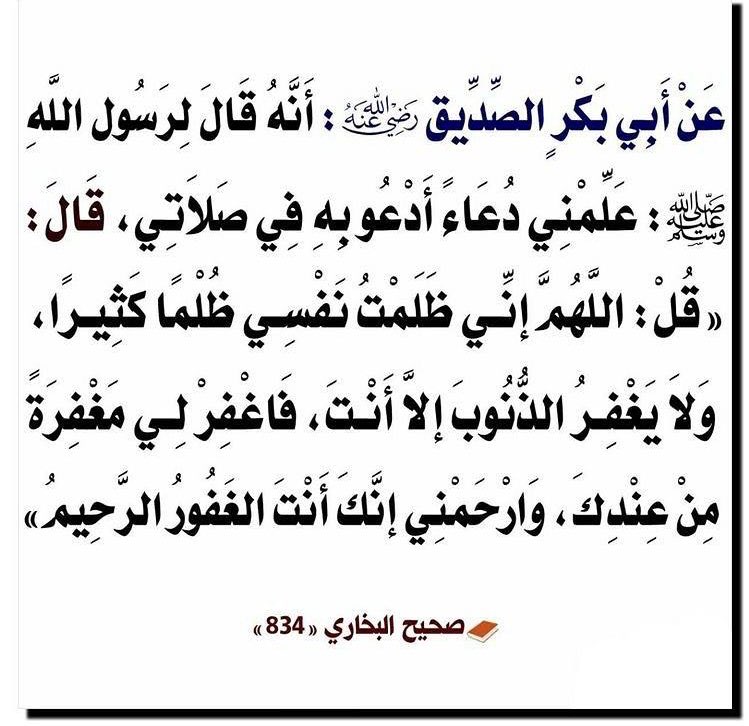 عَنْ أَبِي بَكْرٍ الصِّدِّيقِ رَضِيَ اللَّهُ عَنْهُ : أَنَّهُ قَالَ لِرَسُولِ اللَّهِ
صلى الله عليه وسلم : عَلِّمْنِي دُعَاءً أَدْعُو بِهِ فِي صَلاَتِي، قَالَ :
«قُلْ : اللَّهُمَّ إِنِّي ظَلَمْتُ نَفْسِي ظُلْمًا كَثِيرًا،
وَلاَ يَغْفِرُ الذُّنُوبَ إِلاَّ أَنْتَ، فَاغْفِرْ لِي مَغْفِرَةً
مِنْ عِنْدِكَ، وَارْحَمْنِي إِنَّكَ أَنْتَ الغَفُورُ الرَّحِيمُ»
صحيح البخاري «834»